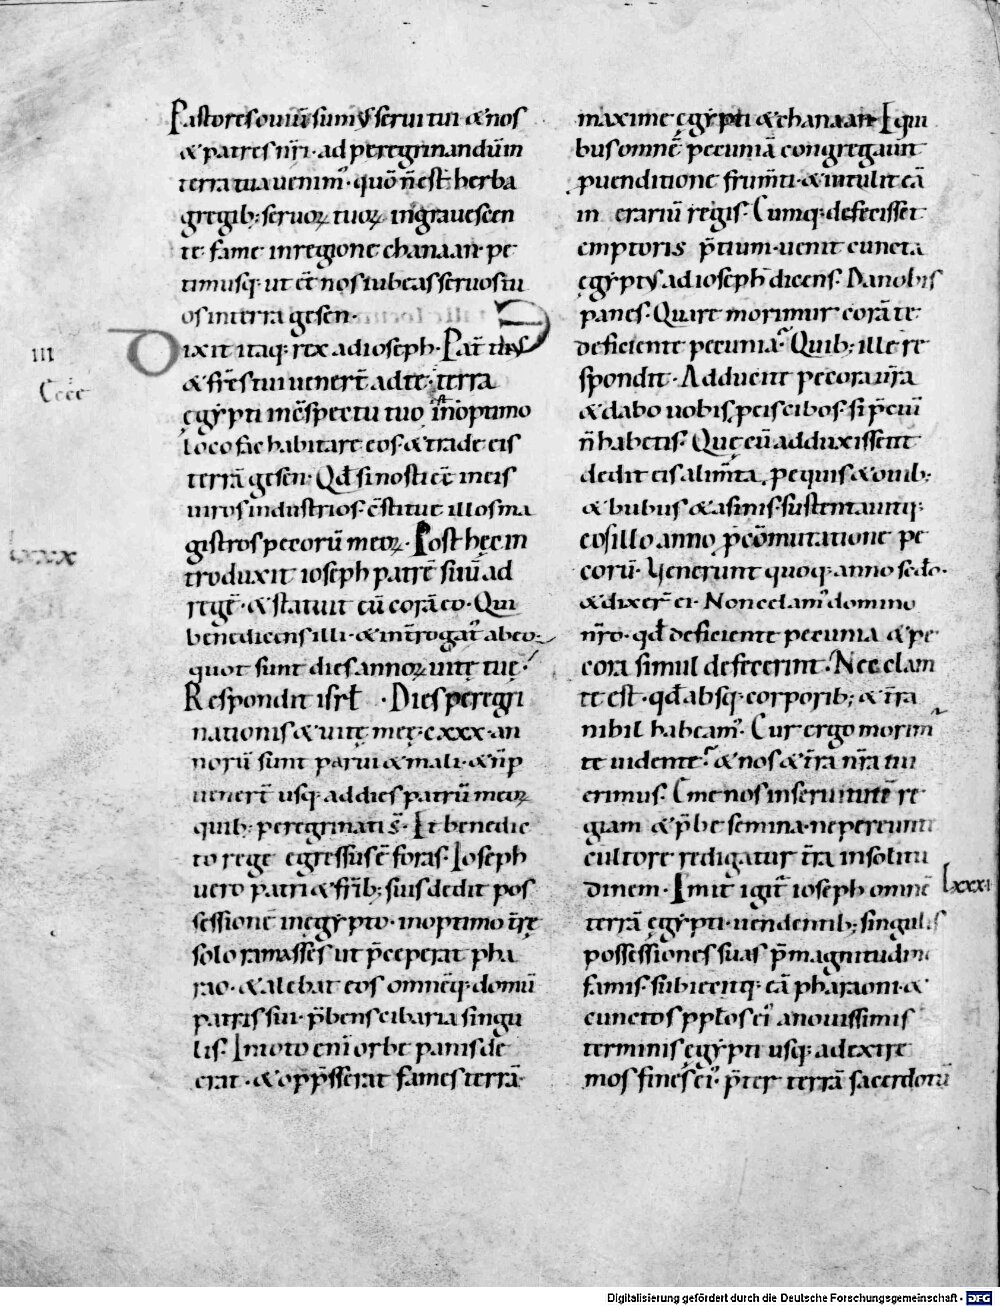 Pastores ouiū sumꝰ serui tui & nos
& patres nr̄i · ad peregrinandū in
terra tua uenimꝰ · quō n̄ est herba
gregib; seruoꝝ tuoꝝ ingrauescen
te fame inregione chanaan · pe
timusq; ut ēē nos iubeas seruos tu
os interra gesen ·
III
Dixit itaq; rex ad ioseph · Pat̄ tuꝰ
& fr̄s tui uener̄t ad te · terra
ęgẏpti inc̄spectu tuo ē · inoptimo
loco fac habitare eos · & trade eis
terrā gesen · Qd̄ si nosti ēē ineis
uiros industrios · c̄stitue illos ma
lxxx
gistros pecorū meoꝝ · Post hęc in
troduxit ioseph patrē suū ad
regē · & statuit eū corā eo · Qui
benedicens illi · & int̄rogatꝰ ab eo ·
quot sunt dies annoꝝ uitę tuę ·
Respondit isrl̄ · Dies peregri
nationis & uitę meę · cxxx · an
norū sunt parui & mali · & n̄ p
uener̄t usq; ad dies patrū meoꝝ
quib; peregrinati s̄ · Et benedic
to rege egressus ē foras · Ioseph
uero patri & fr̄ib; suis dedit pos
sessionē inęgẏpto · inoptimo t̄rę
solo ramasses ut p̄ceperat pha
rao · & alebat eos omnēq; domū
patris sui · p̄bens cibaria singu
lis · Intoto eni orbe panis de
erat · & opp̄sserat fames terrā
maxime ęgẏpti & chanaan · E qui
bus omnē pecuniā congregauit
p uenditione frum̄ti · & intulit eā
in erariū regis · Cumq; defecisset
emptoris p̄tium · uenit cuncta
ęgẏptꝰ ad ioseph dicens · Da nobis
panes · Quare morimur corā te
deficiente pecunia · Quib; ille re
spondit · Adducite pecora ur̄a
& dabo uobis p eis cibos · si p̄ciū
n̄ habetis · Quę cū adduxissent
dedit eis alim̄ta p equis & ouib;
& bubus & asinis · sustentauitq;
eos illo anno p cōmutatione pe
corū · Venerunt quoq; anno sc̄do ·
& dixer̄ ei · Non celamꝰ domino
nr̄o · qd̄ deficiente pecunia & pe
cora simul defecerint · Nec clam
te est · qd̄ absq; corporib; & t̄ra
nihil habeamꝰ · Cur ergo morim
te uidente · & nos & t̄ra nr̄a tui
erimus · Eme nos in seruitutē re
giam & p̄be semina · ne pereunte
cultore redigatur t̄ra insolitu
lxxxi
dinem · Emit igit̄ ioseph omnē
terrā ęgẏpti · uendentib; singulis
possessiones suas p̄ magnitudine
famis · subiecitq; eā pharaoni · &
cunctos ppl̄os eiꝰ a nouissimis
terminis ęgẏpti usq; ad extre
mos fines eiꝰ · p̄ter terrā sacerdotū
Digitalisierung gefördert durch die Deutsche Forschungsgemeinschaft - DFG